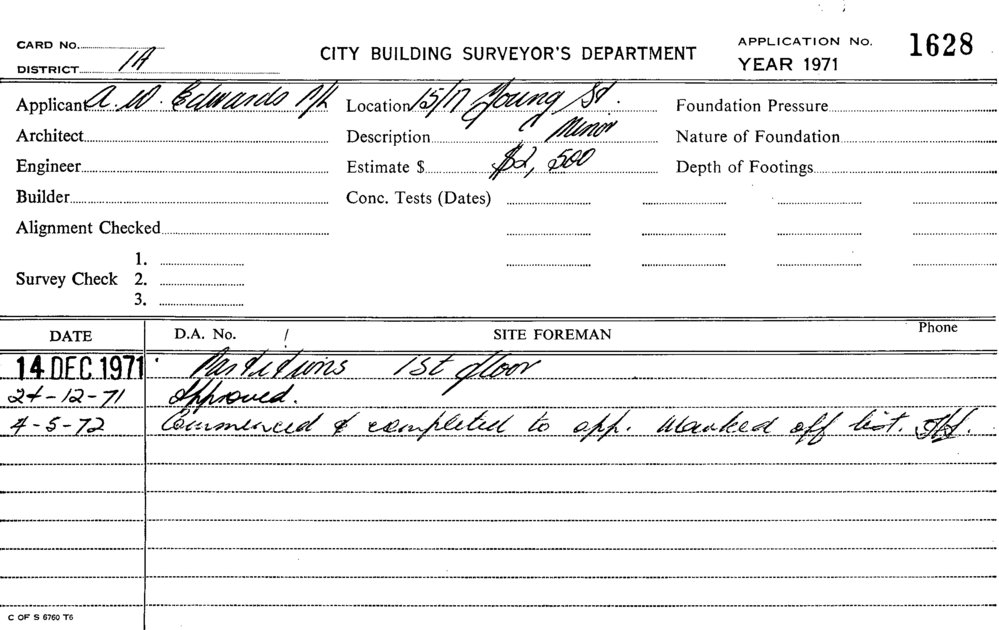 CARD No. CITY BUILDING SURVEYOR'S DEPARTMENT APPLICATION No. 1628
DISTRICT 1A YEAR 1971
Applicant A. W. Edwards P/L Location 15/17 Young St. Foundation Pressure
Architect Description Minor Nature of Foundation
Engineer Estimate $ $2,500 Depth of Footings
Builder Conc. Tests (Dates)
Alignment Checked
1.
Survey Check 2.
3.
DATE D.A. No. / SITE FOREMAN Phone
14 DEC 1971 Partitions 1st floor
24-12-71 Approved.
4-5-72 Commenced & completed to app. Marked off list.
C OF S 6760 T6